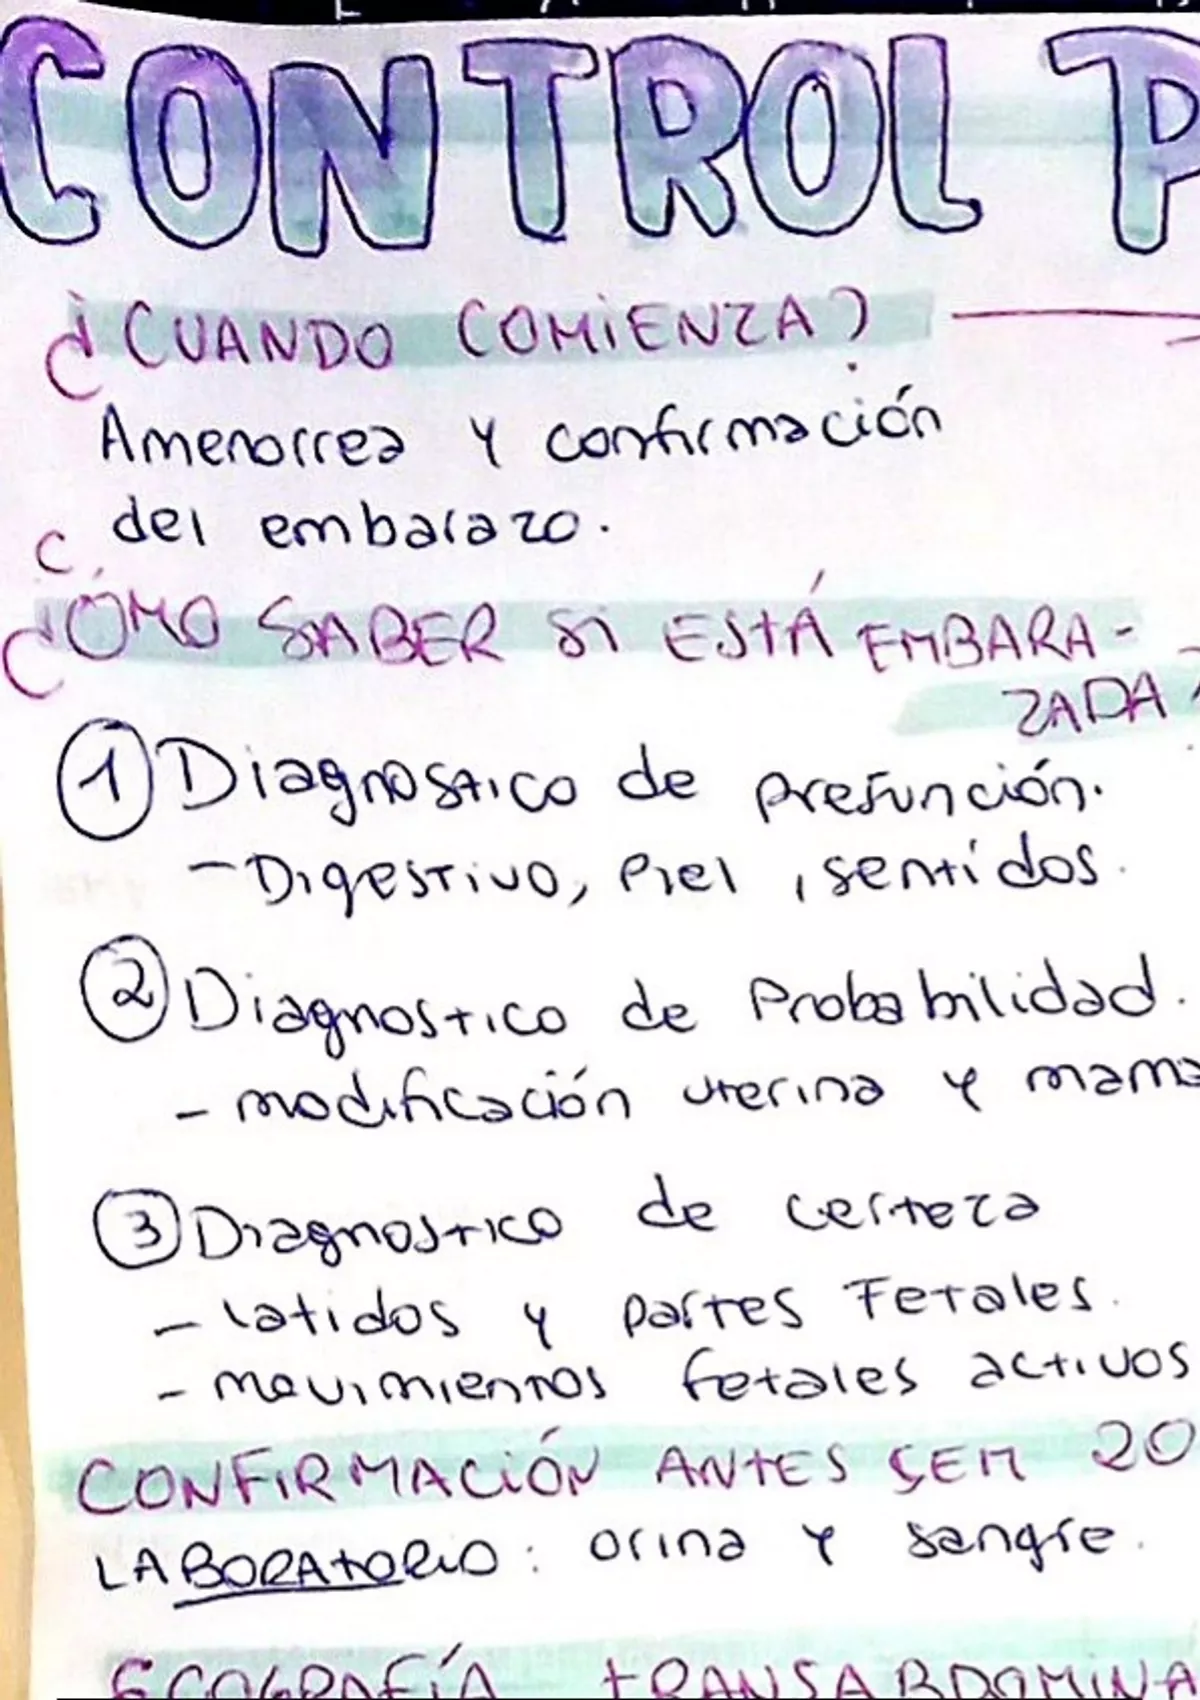 CONTROL P
¿CUANDO COMIENZA?
Amenorrea y confirmación
del embarazo.
¿CÓMO SABER Si ESTÁ EMBARA-
ZADA?
1 Diagnostico de presunción.
- Digestivo, Piel, sentidos.
2 Diagnostico de Probabilidad.
- modificación uterina y mama
3 Diagnostico de certeza
- latidos y partes Fetales.
- movimientos fetales activos
CONFiRMACiÓN ANTES SEM 20
LABORATORIO: orina y sangre.
ECOGRAFÍA TRANSABDOMINA